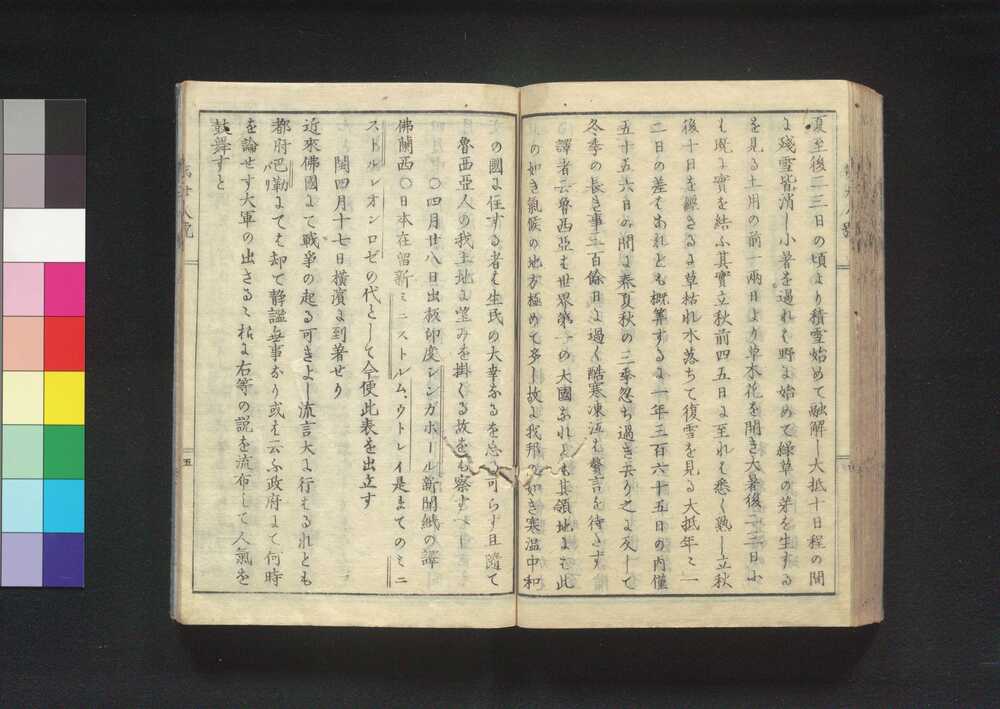 夏至後二三日の頃より積雪始めて融解し大抵十日程の間
に殘雪皆消し小暑を過れは野に始めて緑草の芽を生する
を見る土用の前一兩日より草木花を開き大暑後二三日小
も既に實を結ふ其實立秋前四五日に至れは悉く熟し立秋
後十日を經さるに草枯れ水落ちて復雪を見る大抵年々一
二日の差はあれとも概算するに一年三百六十五日の内僅
五十五六日の間に春夏秋の三季忽ち過き去り之に反して
冬季の長き事三百餘日に過く酷寒凍沍は贅言を待たす
譯者云魯西亞は世界第一の大國なれとも其領地には此
の如き氣候の地方極めて多し故に我邦の如き寒温中和
の國に住する者は生民の大幸なるを忘る可らす且隨て
魯西亞人の我土地に望みを掛くる故をも察すへし
〇四月廿八日出板印度シンガポール新聞紙の譯
佛蘭西〇日本在留新ミニストルム、ウトレイ是まてのミニ
ストルレオンロゼの代として今便此表を出立す
閏四月十七日横濱に到著せり
近來佛國にて戰爭の起る可きよし流言大に行はるれとも
都府巴勒にては却て靜謐無事なり或は云ふ政府にて何時
パリ
を論せす大軍の出さるゝ樣に右等の説を流布して人氣を
鼓舞すと
五